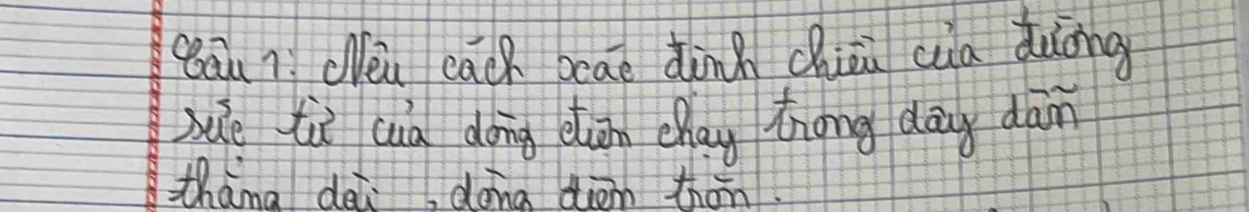 Câu 1: Nêu cách xác định chiều của đường
sức từ của dòng điện chạy trong dây dẫn
thẳng dài, dòng điện tròn.